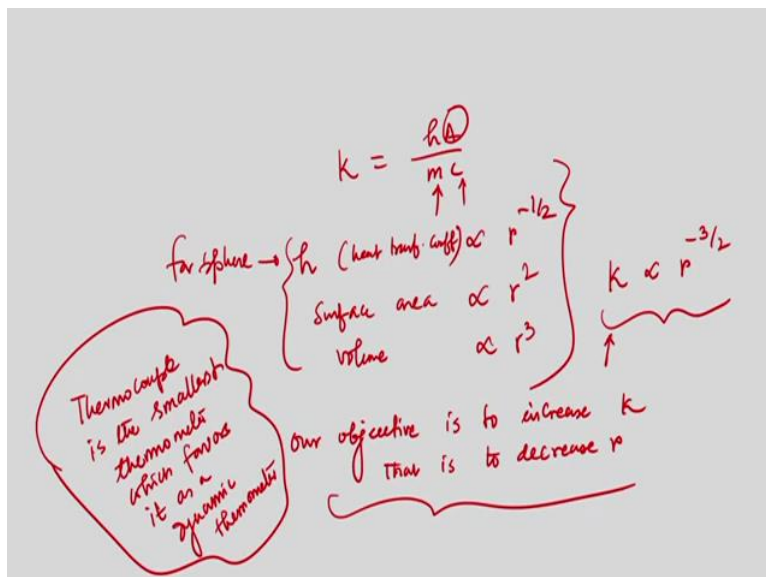 k = hA / mc
for sphere → h (heat transf. coefft) ∝ r^{-1/2}
surface area ∝ r^2
volume ∝ r^3
k ∝ r^{-3/2}
our objective is to increase k
That is to decrease r
Thermocouple
is the smallest
thermometer
which favors
it as a
dynamic
thermometer